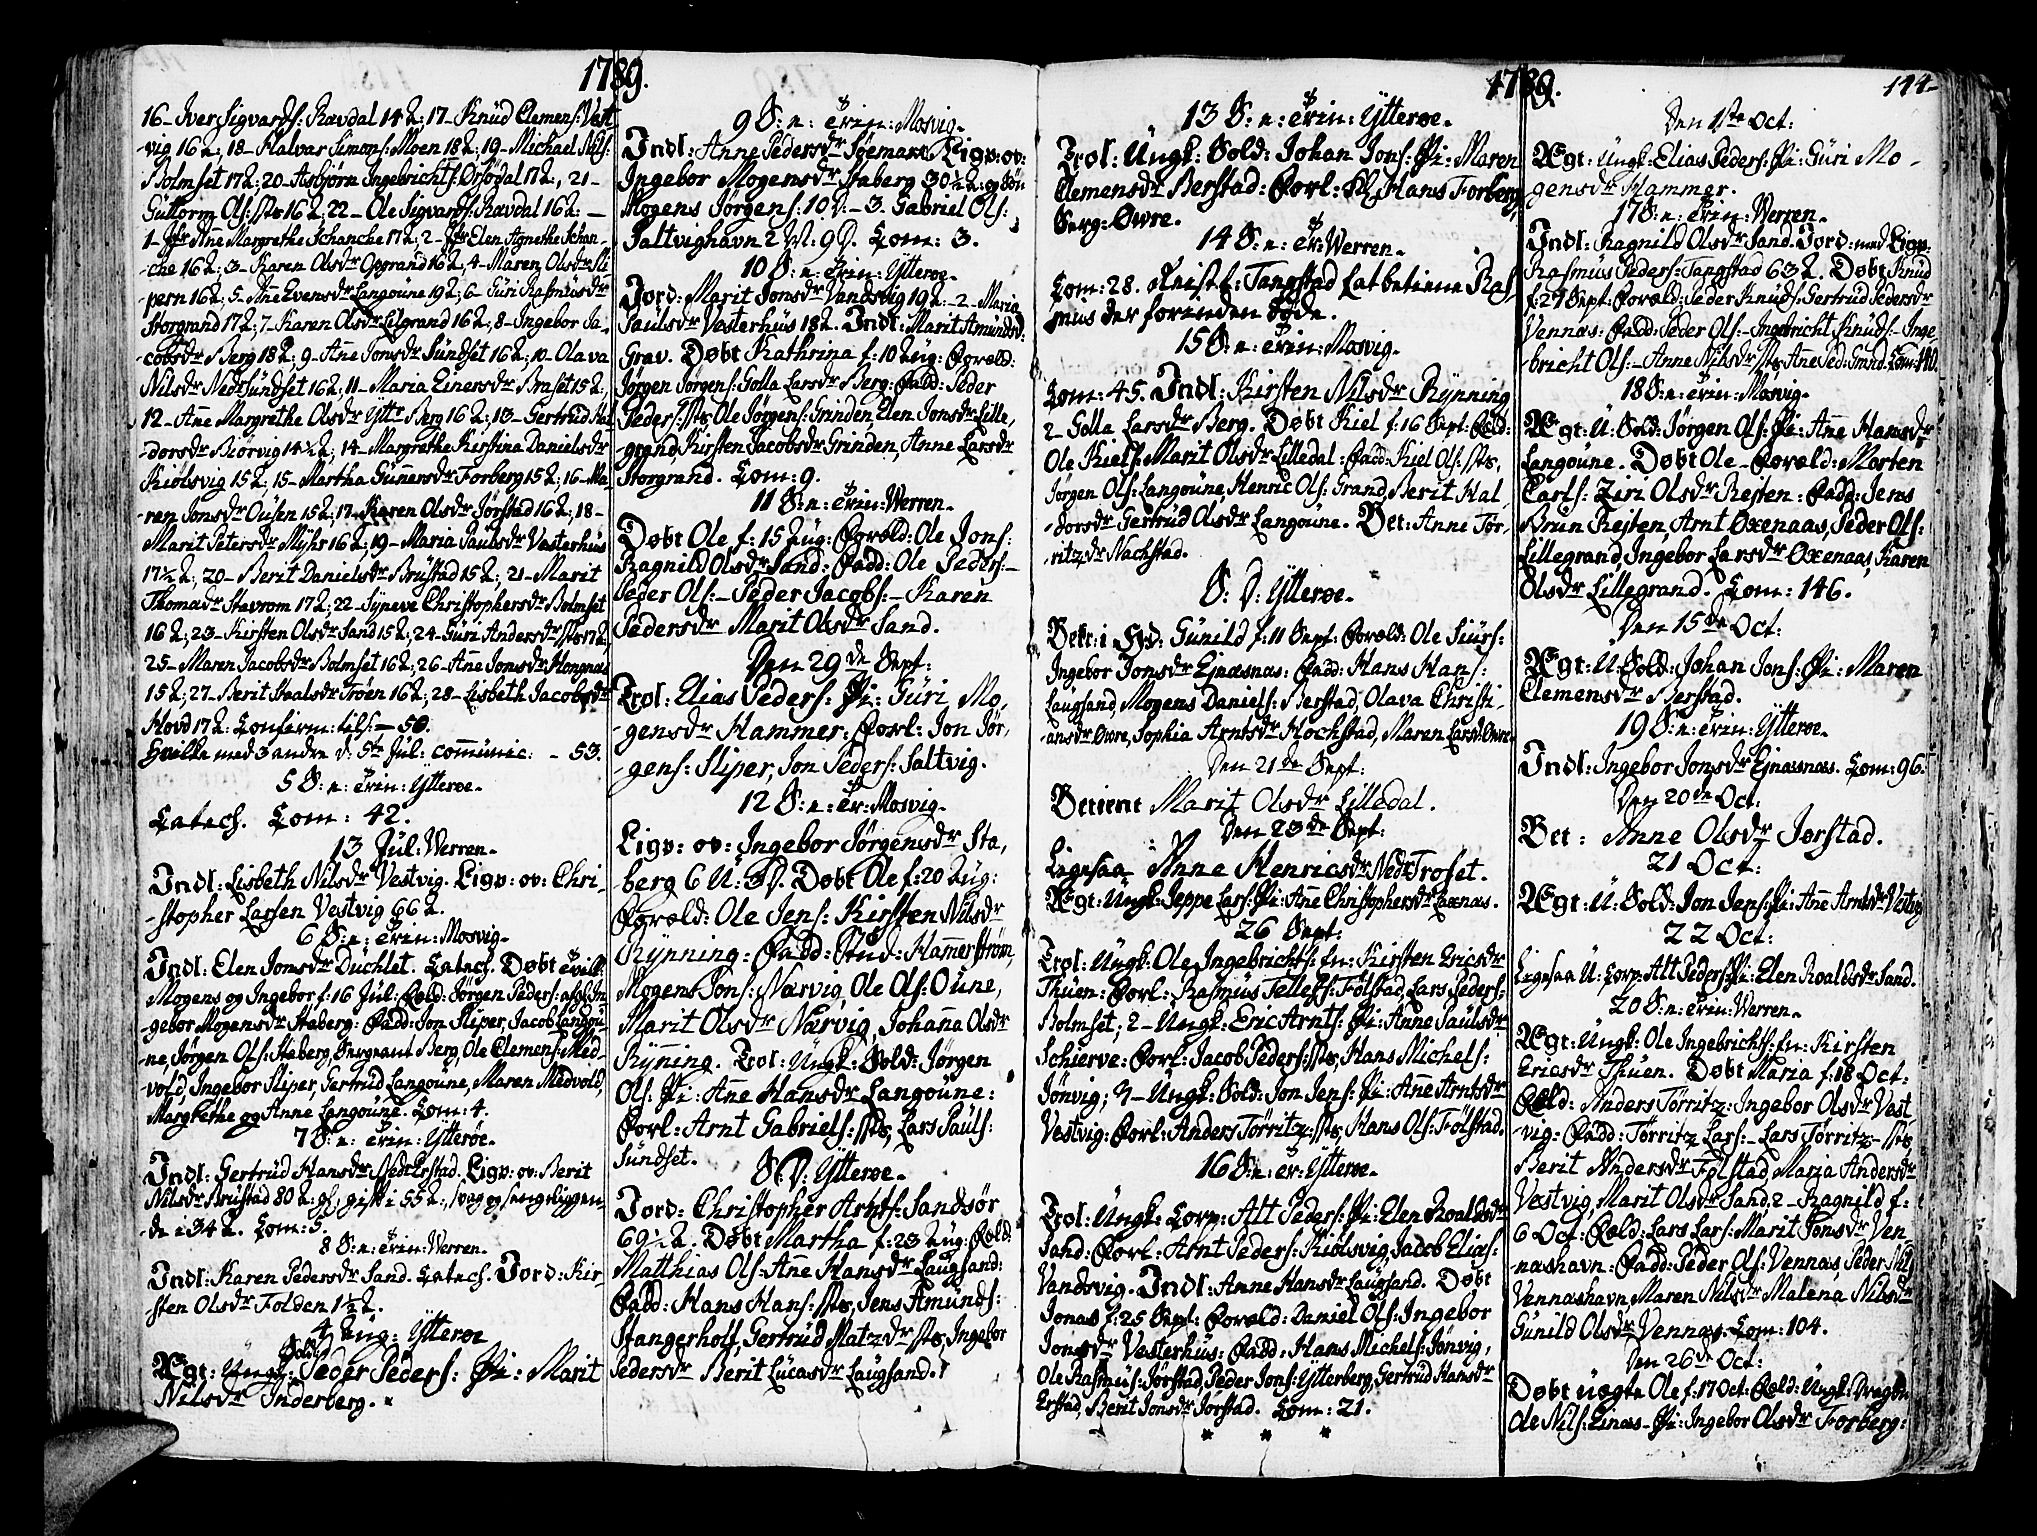 1789.
16- Iver Sigvards: Ravdal 14 2; 17- Knud Clemens: Vest
-vig 16 2; 18- Halvar Simons: Moen 18 2; 19- Michael Nils:
Bolmset 17 2; 20- Asbjörn Ingebrichts: Orsödal 17 2; 21-
Guttorm Ols: sts 16 2; 22- Ole Sigvards: Ravdal 16 2: -
1- Jfr Anne Margrethe Schanche 17 2; 2- Jfr Elen Agnethe Schan-
-che 16 2; 3- Karen Olsdr Opgrand 16 2; 4- Maren Olsdr Sli-
pern 16 2; 5- Anne Evensdr Langoune 19 2; 6- Guri Rasmusdr
Storgrand 17 2; 7- Karen Olsdr Lilgrand 16 2; 8- Ingebor Ja-
cobsdr Berg 18 2; 9- Anne Jonsdr Sundset 16 2; 10- Olava
Nilsdr Nedr Sundset 16 2; 11- Maria Einersdr Braset 15 2;
12- Anne Margrethe Olsdr Yttr Berg 16 2; 13- Gertrud Hal
dorsdr Biörvig 14½ 2; 14- Margrethe Kirstina Danielsdr
Kiölsvig 15 2; 15- Martha Gunersdr Forberg 15 2; 16- Ma-
ren Jonsdr Ousen 15 2; 17- Karen Olsdr Jörstad 16 2; 18-
Marit Petersdr Myhr 16 2; 19- Maria Paulsdr Vasterhus
17½ 2; 20- Berit Danielsdr Brustad 15 2; 21- Marit
Thomadr Stavrom 17 2; 22- Syneve Christophersdr Bolmset
16 2; 23- Kirsten Olsdr Sand 15 2; 24- Guri Andersdr sts 17 2
25- Maren Jacobsdr Bolmset 16 2; 26- Anne Jonsdr Hongnes
15 2; 27- Berit Haalsdr Tröen 16 2; 28- Lisbeth Jacobsdr
Hovd 17 2: Confirm: tils: - 50.
Hvilke med 3 andre d: 5te Jul: communic: - 53.
5 S: n: Trin: Ytteröe.
Catech. Com: 42.
13 Jul: Werren-
Indl: Lisbeth Nilsdr Vestvig. Ligp: ov: Chri-
-stopher Larsen Vestvig 66 2.
6 S: n: Trin: Mosvig.
Indl: Elen Jonsdr Duchlet. Catech. Döbt tvill:
Mogens og Ingebor f: 16 Jul: Foræld: Jörgen Peders: afgl: In-
gebor Mogensdr Staberg: Fadd: Jon Sliper, Jacob Langou-
ne, Jörgen Ols: Staberg, Sergeant Berg, Ole Clemens: Med-
vold, Ingebor Sliper, Gertrud Langoune, Maren Medvold,
Margrethe og Anne Langoune. Com: 4.
7 S: n: Trin: Ytteröe.
Indl: Gertrud Hansdr Nedr Erstad. Ligp: ov: Berit
Nilsdr Brustad 80 2. gl; gift i 55 2:, svag og sengeliggen-
de i 34 2. Com: 5.
8 S: n: Trin: Werren-
Indl: Karen Pedersdr Sand. Catech. Jord: Kir-
-sten Olsdr Folden 1½ 2.
4 Aug: Ytteröe
Ægt: Ungk: Sold: Peder Peders: Pi: Marit
Nilsdr Inderberg.
9 S: n: Trin: Mosvig-
Indl: Anne Pedersdr Ligp: ov:
Ingebor Mogensdr Staberg 30½ 2: og Sön
Mogens Jörgens: 10 D.- 3. Gabriel Ols:
Saltvighavn 2 M: 9 D. Com: 3.
10 S: n: Trin: Ytteröe-
Jord: Marit Jonsdr Vandsvig 19 2- 2- Maria
Paulsdr Vasterhus 18 2. Indl: Marit Amundsd:
Grav. Döbt Kathrina f: 10 Aug: Foræld:
Jörgen Jörgens: Golla Larsdr Berg: Fadd: Peder
Peders: sts, Ole Jörgens: Grinden, Elen Jonsdr Lille,
grand, Kirsten Jacobsdr Grinden, Anne Larsdr
Storgrand. Com: 9.
11 S: n: Trin: Werren-
Döbt Ole f: 15 Aug: Foræld: Ole Jons:
Ragnild Olsdr Sand: Fadd: Ole Peders:-
Peder Ols:- Peder Jacobs:- Karen
Pedersdr Marit Olsdr Sand.
Den 29de Sept:
Trol: Elias Peders: Pi: Guri Mo-
-gensdr Hammer: Forl: Jon Jör-
-gens: Sliper, Jon Peders: Saltvig.
12 S: n: Tr: Mosvig-
Ligp: ov: Ingebor Jörgensdr Sta,
berg 6 U: 3 D. Döbt Ole f: 20 Aug:
Foræld: Ole Jens: Kirsten Nilsdr
Rynning: Fadd: Stud: Hammerström,
Mogens Jons: Nærvig, Ole Ols: Oune,
Marit Olsdr Nærvig, Johanna Olsdr
Ryning. Trol: Ungk: Sold: Jörgen
Ols: Pi: Anne Hansdr Langoune:
Forl: Arnt Gabriels: sts, Lars Pauls:
Sundset.
S: D: Ytteröe-
Jord: Christopher Arnts: Sandsör
69½ 2. Döbt Martha f: 23 Aug: Foræld:
Matthias Ols: Anne Hansdr Laugsand:
Fadd: Hans Hans: sts, Jens Amunds:
Stangerholt, Gertrud Matzdr sts, Ingebor
Pedersdr Berit Lucasdr Laugsand.
1789.
13 S: n: Trin: Ytteröe-
Trol: Ungk: Sold: Johan Jons: Pi: Maren
Clemensdr Berstad: Forl: Hans Forberg,
Serg: Owre.
14 S: n: Tr: Werren-
Com: 28. Tangstad lat betiene Ras
mus der forinden döde.
15 S: n: Trin: Mosvig-
Com: 45. Indl: Kirsten Nilsdr Rynning
2- Golla Larsdr Berg. Döbt Kiel f: 16 Sept: Foræld:
Ole Kiels: Marit Olsdr Lilledal: Fadd: Kiel Ols: sts,
Jörgen Ols: Langoune, Henric Ols: Grand, Berit Hal
-dorsdr Gertrud Olsdr Langoune. Bet: Anne Tör-
-ritzdr Nachstad.
S: D: Ytteröe-
Bekr: i Gunild f: 11 Sept: Foræld: Ole Siurs:
Ingebor Jonsdr Ejnæsnas: Fadd: Hans Hans:
Laugsand, Mogens Daniels: Berstad, Olava Christi-
-ansdr Owre, Sophia Arntsdr Hochstad, Maren Larsd: Owre-
Den 21de Sept:
Betient Marit Olsdr Lilledal.
Den 23de Sept:
Ligesaa Anne Henricsdr Nedr Troset.
Ægt: Ungk: Jeppe Lars: Pi: Anne Christophersdr Oxenas.
26 Sept:
Trol: Ungk: Ole Ingebrichts: En: Kirsten Ericsdr
Thuen: Forl: Rasmus Tellefs: Fölstad, Lars Peders:
Bolmset; 2- Ungk: Eric Arnts: Pi: Anne Paulsdr
Schierve: Forl: Jacob Peders: sts, Hans Michels:
Jönvig; 3- Ungk: Sold: Jon Jens: Pi: Anne Arntsdr
Vestvig: Forl: Anders Törritz: sts, Hans Ols: Fölstad.
16 S: n: Tr: Ytteröe-
Trol: Ungk: Corp: Alt Peders: Pi: Elen Roaldsdr
Sand: Forl: Arnt Peders: Kiölsvig, Jacob Elias:
Vandsvig. Indl: Anne Hansdr Laugsand. Döbt
Jonas f: 25 Sept: Foræld: Daniel Ols: Ingebor
Jonsdr Vesterhus: Fadd: Hans Michels: Jönvig,
Ole Rasmus: Jörstad, Peder Jons: Ytterberg, Gertrud Hansdr
Erstad, Berit Jonsdr Jorstad. Com: 21.
* * *
144-
Den 1ste Oct:
Ægt: Ungk: Elias Peders: Pi: Guri Mo-
gensdr Hammer.
17 S: n: Trin: Werren-
Indl: Ragnild Olsdr Sand. Jord: med Ligp:
Rasmus Peders: Tangstad 63 2. Döbt Knud
f: 27 Sept: Foræld: Peder Knuds: Gertrud Pedersdr
Vennas: Fadd: Peder Ols:- Ingebricht Knuds:- Inge-
-bricht Ols:- Anne Nilsdr sts, Com: 140.
18 S: n: Trin: Mosvig-
Ægt: U: Sold: Jörgen Ols: Pi: Anne Hansdr
Langoune. Döbt Ole- Foræld: Morten
Carls: Ziri Olsdr Rejten: Fadd: Jens
Brun Rejten, Arnt Oxenaas, Peder Ols:
Lillegrand, Ingebor Larsdr Oxenaas, Karen
Olsdr Lillegrand. Com: 146.
Den 15de Oct:
Ægt: U: Sold: Johan Jons: Pi: Maren
Clemensdr Berstad.
19 S: n: Trin: Ytteröe.
Indl: Ingebor Jonsdr Ejnæsnas. Com: 96.
Den 20de Oct:
Bet: Anne Olsdr Jorstad.
21 Oct:
Ægt: U: Sold: Jon Jens: Pi: Anne Arntsdr Vestvig
22 Oct:
Ligesaa U: Corp: Alt Peders: Pi: Elen Roaldsdr Sand.
20 S: n: Trin: Werren-
Ægt: Ungk: Ole Ingebrichts: En: Kirsten
Ericsdr Thuen. Döbt Maria f: 18 Oct:
Foræld: Anders Törritz: Ingebor Olsdr Vest
-vig: Fadd: Törritz Lars:- Lars Törritz- sts,
Berit Andersdr Fölstad, Maria Andersdr
Vestvig, Marit Olsdr Sand, 2- Ragnild f:
6 Oct: Foræld: Lars Lars: Marit Jonsdr Ven-
-nashavn: Fadd: Peder Ols: Vennas, Peder Nils
Vennashavn, Maren Nilsdr Malena Nilsdr
Gunild Olsdr Vennas. Com: 104.
Den 26de Oct:
Döbt uægte Ole f: 17 Oct: Foræld: Ungk: Dragon
Ole Nils: Einas- Pi: Ingebor Olsdr Forberg: